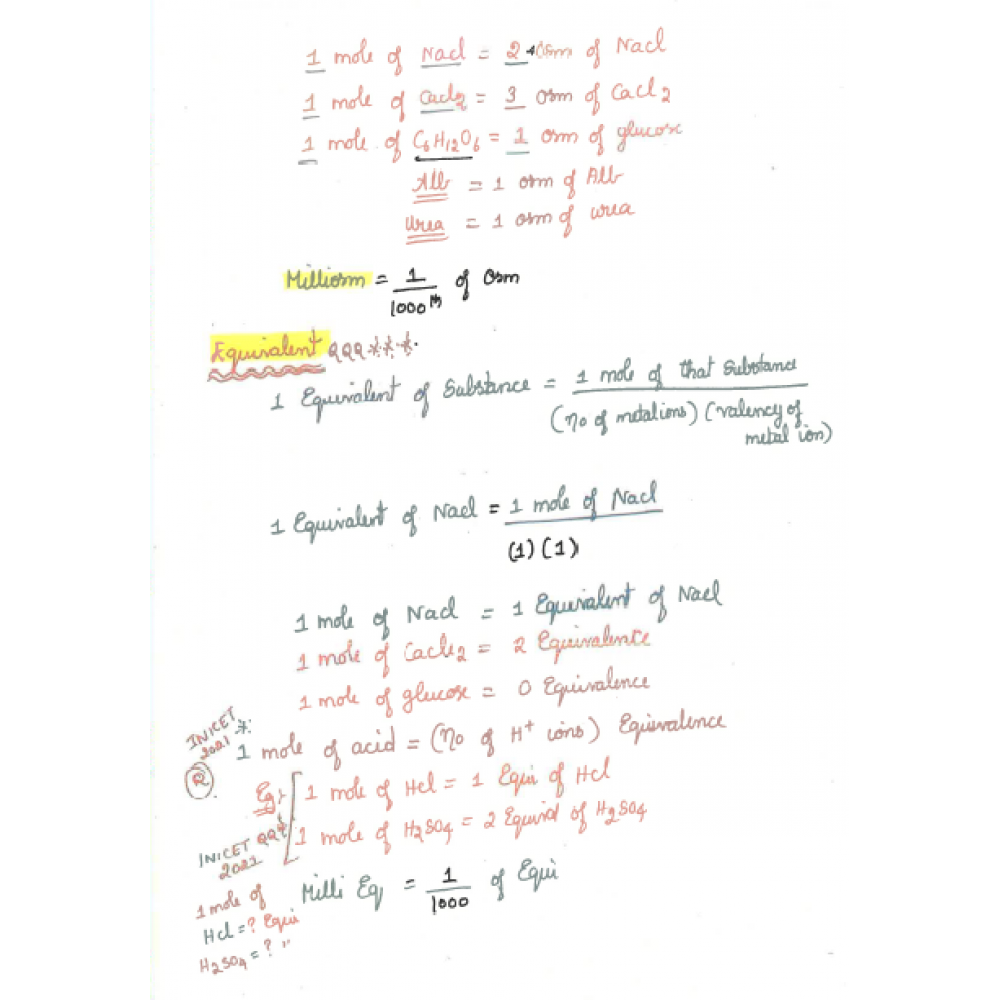 1 mole of Nacl = 2 osm of Nacl
1 mole of Cacl2 = 3 osm of Cacl2
1 mole of C6H12O6 = 1 osm of glucose
Alb = 1 osm of Alb
Urea = 1 osm of urea
Milliosm = 1/1000th of Osm
Equivalent QQQ***.
1 Equivalent of Substance = 1 mole of that Substance
(no of metal ions) (valency of
metal ion)
1 Equivalent of Nacl = 1 mole of Nacl
(1) (1)
1 mole of Nacl = 1 Equivalent of Nacl
1 mole of Cacl2 = 2 Equivalence
1 mole of glucose = 0 Equivalence
INICET
2021 *:
1 mole of acid = (no of H+ ions) Equivalence
R
Eg:- 1 mole of Hcl = 1 Equi of Hcl
1 mole of H2SO4 = 2 Equival of H2SO4
INICET QQ*
2021
Milli Eq = 1/1000 of Equi
1 mole of
Hcl = ? Equi
H2SO4 = ? "